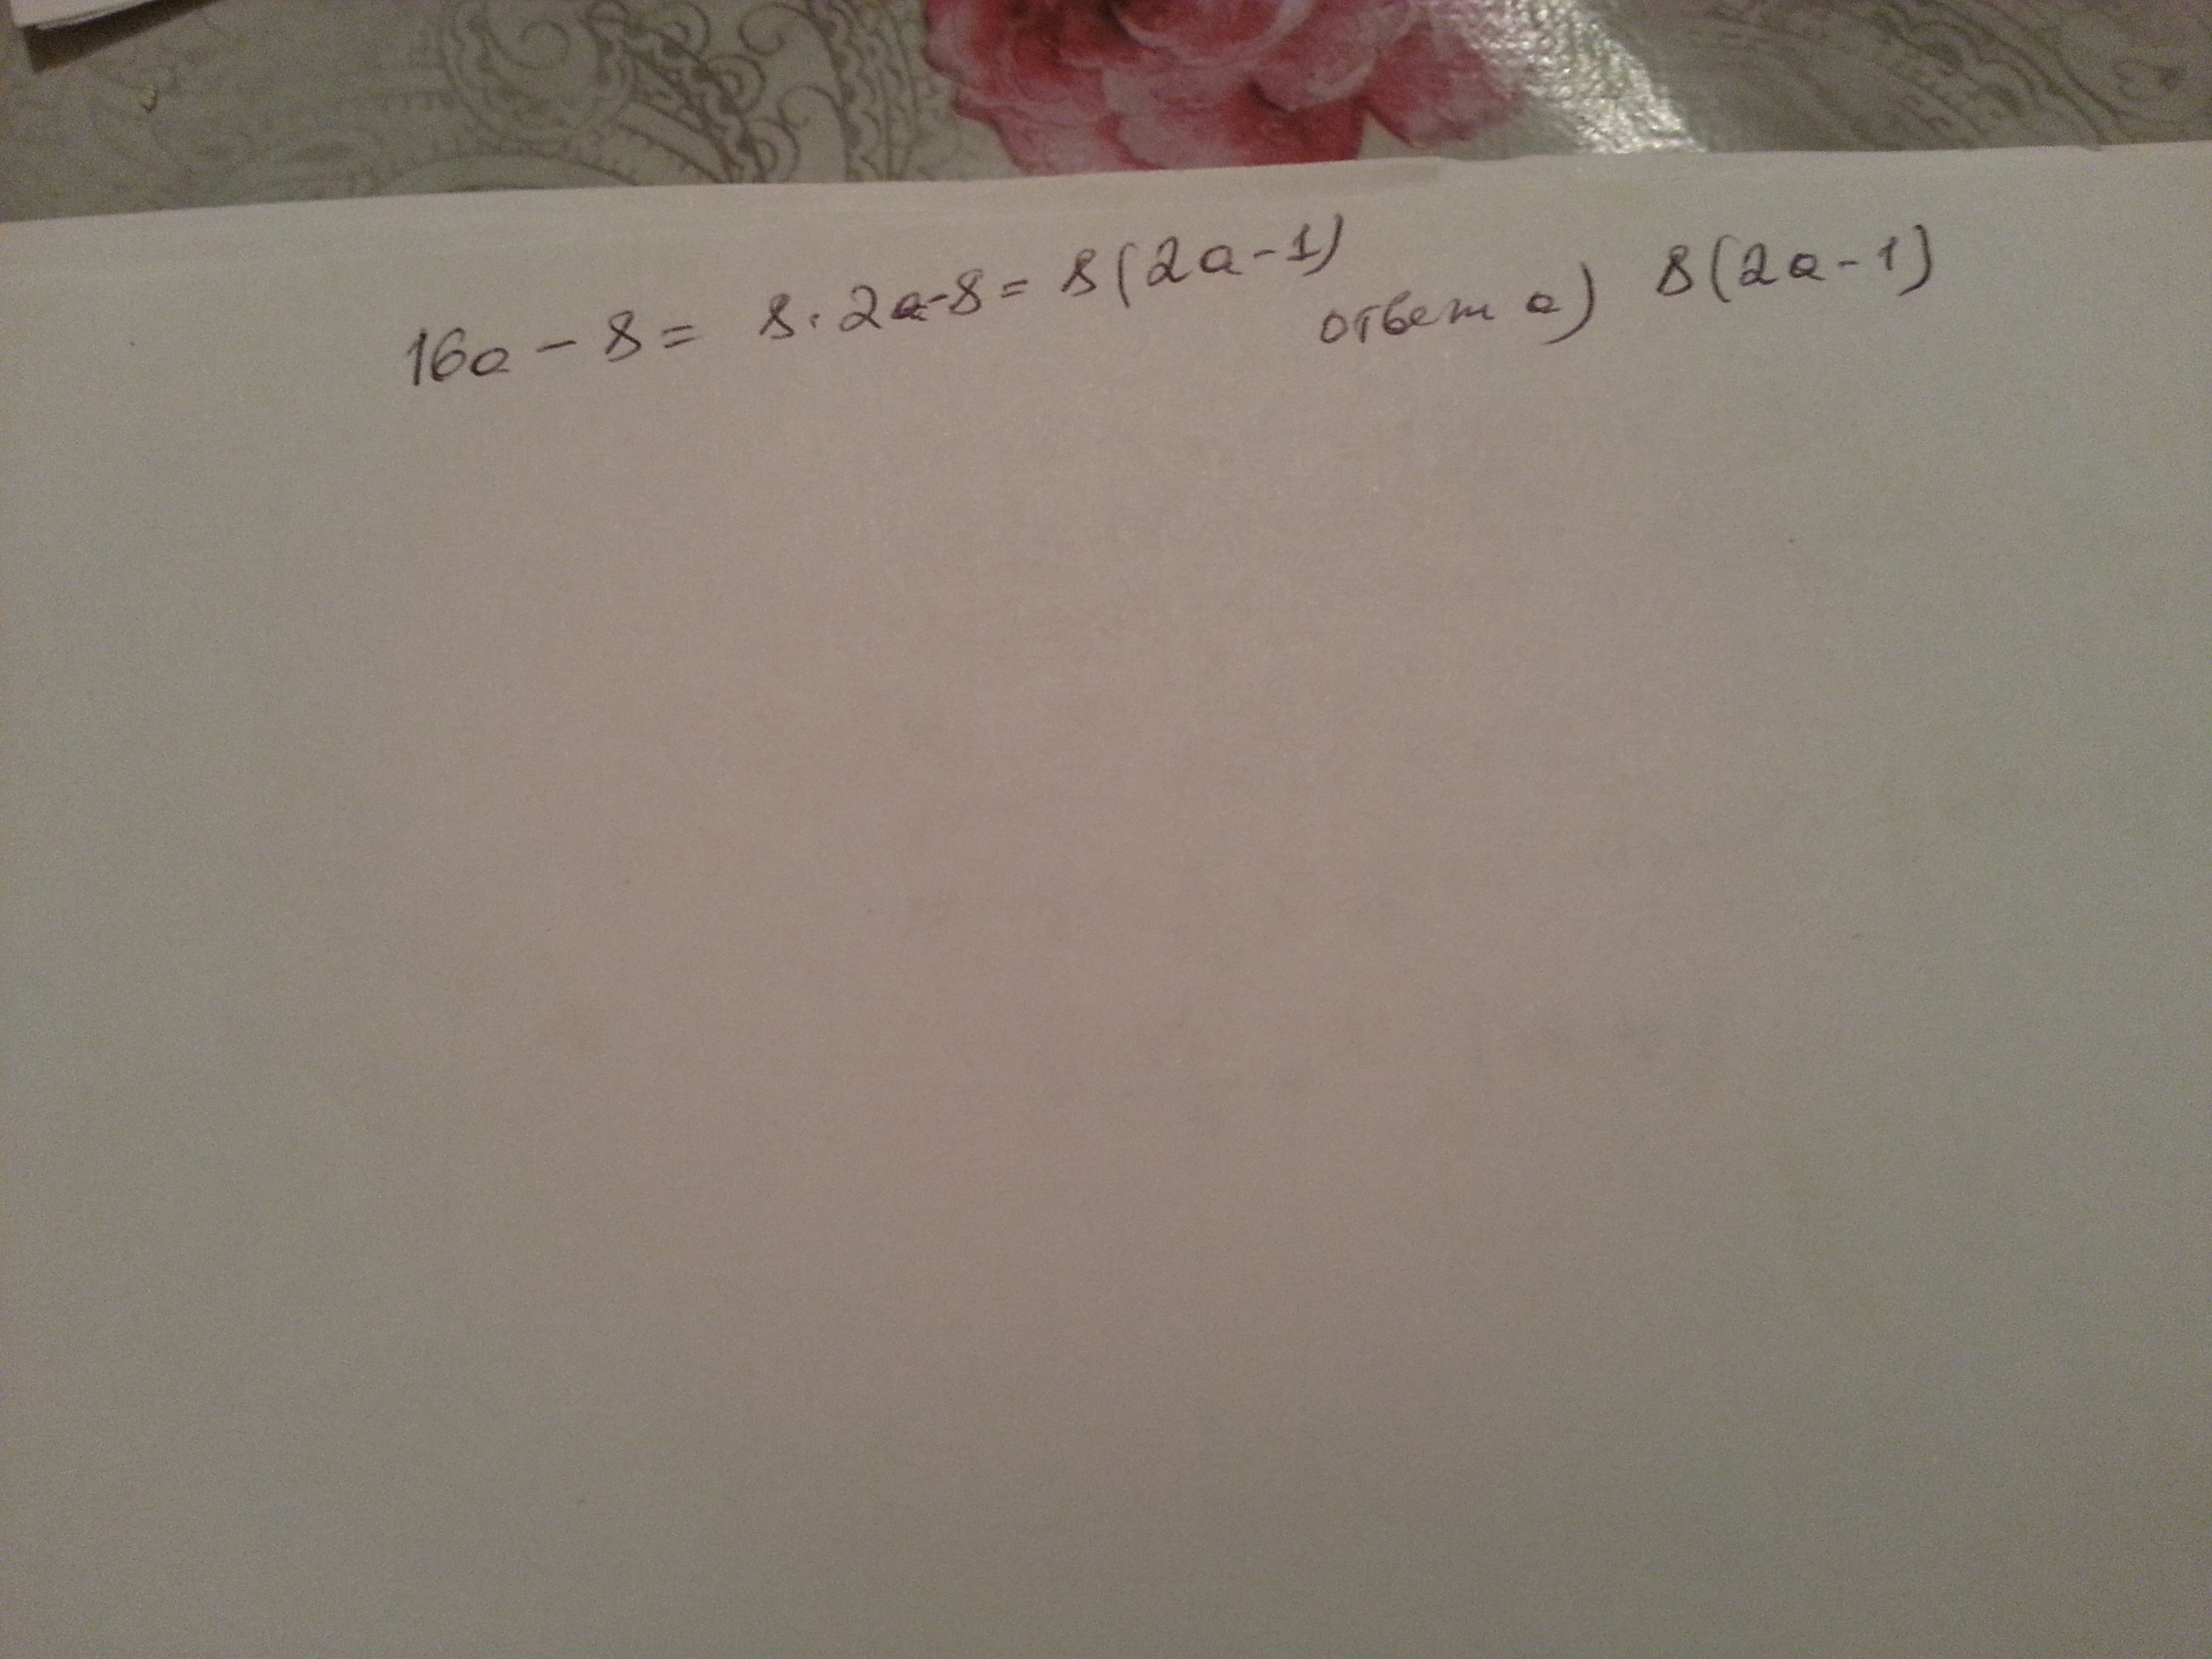 16a - 8 = 8·2a-8 = 8(2a-1)
ответ а) 8(2a-1)